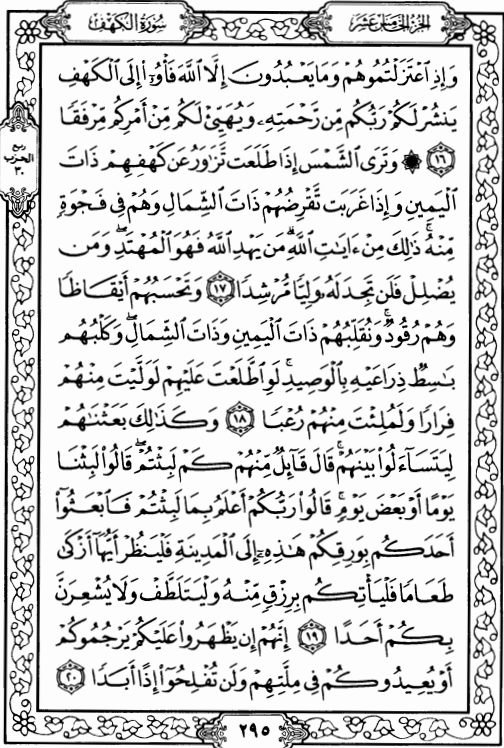 سُورَةُ الكَهْفِ
الجُزْءُ الخَامِسَ عَشَرَ
وَإِذِ ٱعْتَزَلْتُمُوهُمْ وَمَا يَعْبُدُونَ إِلَّا ٱللَّهَ فَأْوُۥٓا۟ إِلَى ٱلْكَهْفِ
يَنشُرْ لَكُمْ رَبُّكُم مِّن رَّحْمَتِهِۦ وَيُهَيِّئْ لَكُم مِّنْ أَمْرِكُم مِّرْفَقًا
﴿١٦﴾ ۞ وَتَرَى ٱلشَّمْسَ إِذَا طَلَعَت تَّزَٰوَرُ عَن كَهْفِهِمْ ذَاتَ
ٱلْيَمِينِ وَإِذَا غَرَبَت تَّقْرِضُهُمْ ذَاتَ ٱلشِّمَالِ وَهُمْ فِى فَجْوَةٍ
مِّنْهُ ۚ ذَٰلِكَ مِنْ ءَايَٰتِ ٱللَّهِ ۗ مَن يَهْدِ ٱللَّهُ فَهُوَ ٱلْمُهْتَدِ ۖ وَمَن
يُضْلِلْ فَلَن تَجِدَ لَهُۥ وَلِيًّا مُّرْشِدًا ﴿١٧﴾ وَتَحْسَبُهُمْ أَيْقَاظًا
وَهُمْ رُقُودٌ ۚ وَنُقَلِّبُهُمْ ذَاتَ ٱلْيَمِينِ وَذَاتَ ٱلشِّمَالِ ۖ وَكَلْبُهُم
بَٰسِطٌ ذِرَاعَيْهِ بِٱلْوَصِيدِ ۚ لَوِ ٱطَّلَعْتَ عَلَيْهِمْ لَوَلَّيْتَ مِنْهُمْ
فِرَارًا وَلَمُلِئْتَ مِنْهُمْ رُعْبًا ﴿١٨﴾ وَكَذَٰلِكَ بَعَثْنَٰهُمْ
لِيَتَسَآءَلُوا۟ بَيْنَهُمْ ۚ قَالَ قَآئِلٌ مِّنْهُمْ كَمْ لَبِثْتُمْ ۖ قَالُوا۟ لَبِثْنَا
يَوْمًا أَوْ بَعْضَ يَوْمٍ ۚ قَالُوا۟ رَبُّكُمْ أَعْلَمُ بِمَا لَبِثْتُمْ فَٱبْعَثُوٓا۟
أَحَدَكُم بِوَرِقِكُمْ هَٰذِهِۦٓ إِلَى ٱلْمَدِينَةِ فَلْيَنظُرْ أَيُّهَآ أَزْكَىٰ
طَعَامًا فَلْيَأْتِكُم بِرِزْقٍ مِّنْهُ وَلْيَتَلَطَّفْ وَلَا يُشْعِرَنَّ
بِكُمْ أَحَدًا ﴿١٩﴾ إِنَّهُمْ إِن يَظْهَرُوا۟ عَلَيْكُمْ يَرْجُمُوكُمْ
أَوْ يُعِيدُوكُمْ فِى مِلَّتِهِمْ وَلَن تُفْلِحُوٓا۟ إِذًا أَبَدًا ﴿٢٠﴾
ربع
الحزب
٣٠
٢٩٥